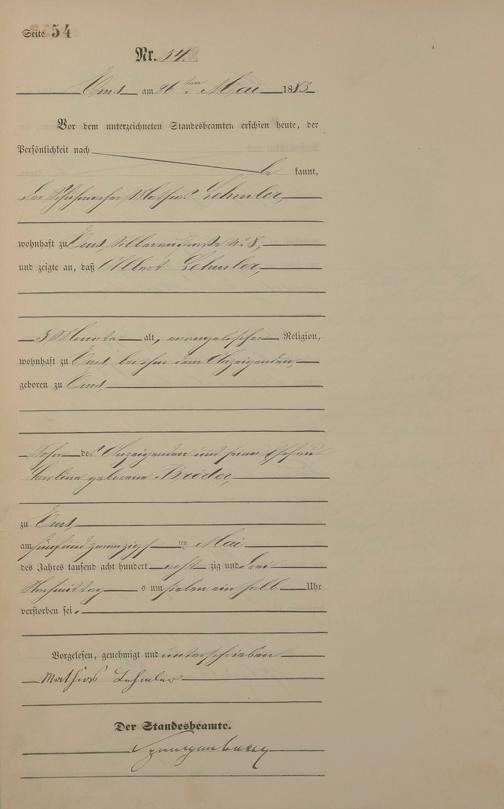 Seite 54
Nr. 54.
Ems am 26ten Mai 1883
Vor dem unterzeichneten Standesbeamten erschien heute, der
Persönlichkeit nach
be kannt,
der Schuhmacher Mathias Lehmler,
wohnhaft zu Ems, N: 8,
und zeigte an, daß Albert Lehmler,
3 Monate alt, evangelischer Religion,
wohnhaft zu Ems, bei ihm dem Anzeigenden
geboren zu Ems,
Sohn des Anzeigenden und seiner Ehefrau
geborene Brödor,
zu Ems,
am fünfundzwanzigsten Mai
des Jahres tausend acht hundert acht zig und drei
Nachmittags um sieben ein halb Uhr
verstorben sei.
Vorgelesen, genehmigt und unterschrieben
Mathias Lehmler
Der Standesbeamte.